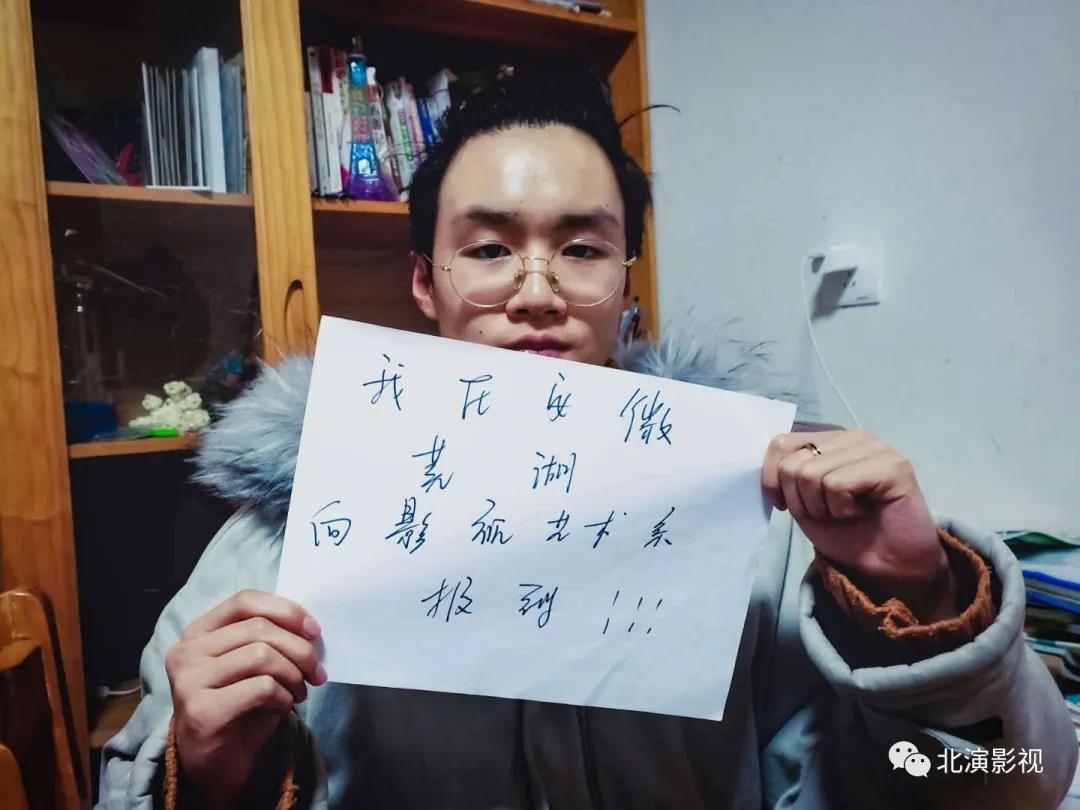 我在安徽
芜湖
向影视艺术系
报到!!!
北演影视